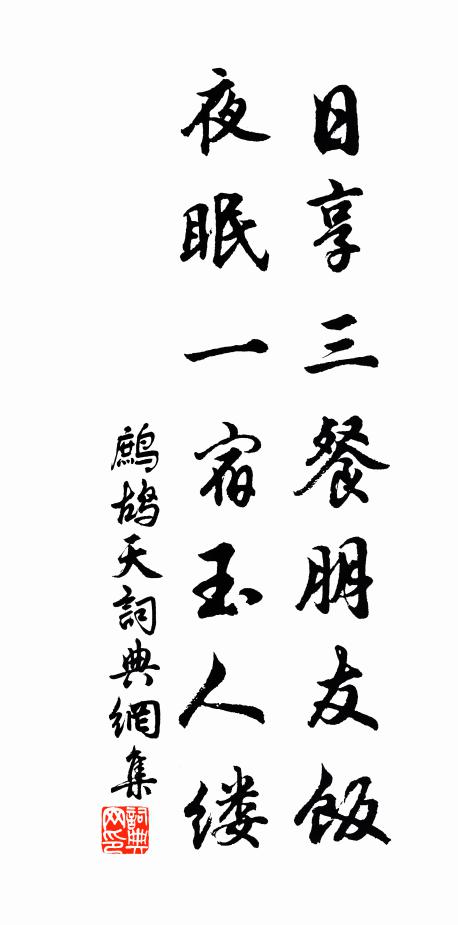 日享三餐朋友飯
夜眠一宿玉人缕
鷓鴣天詞典網集
詞典网印